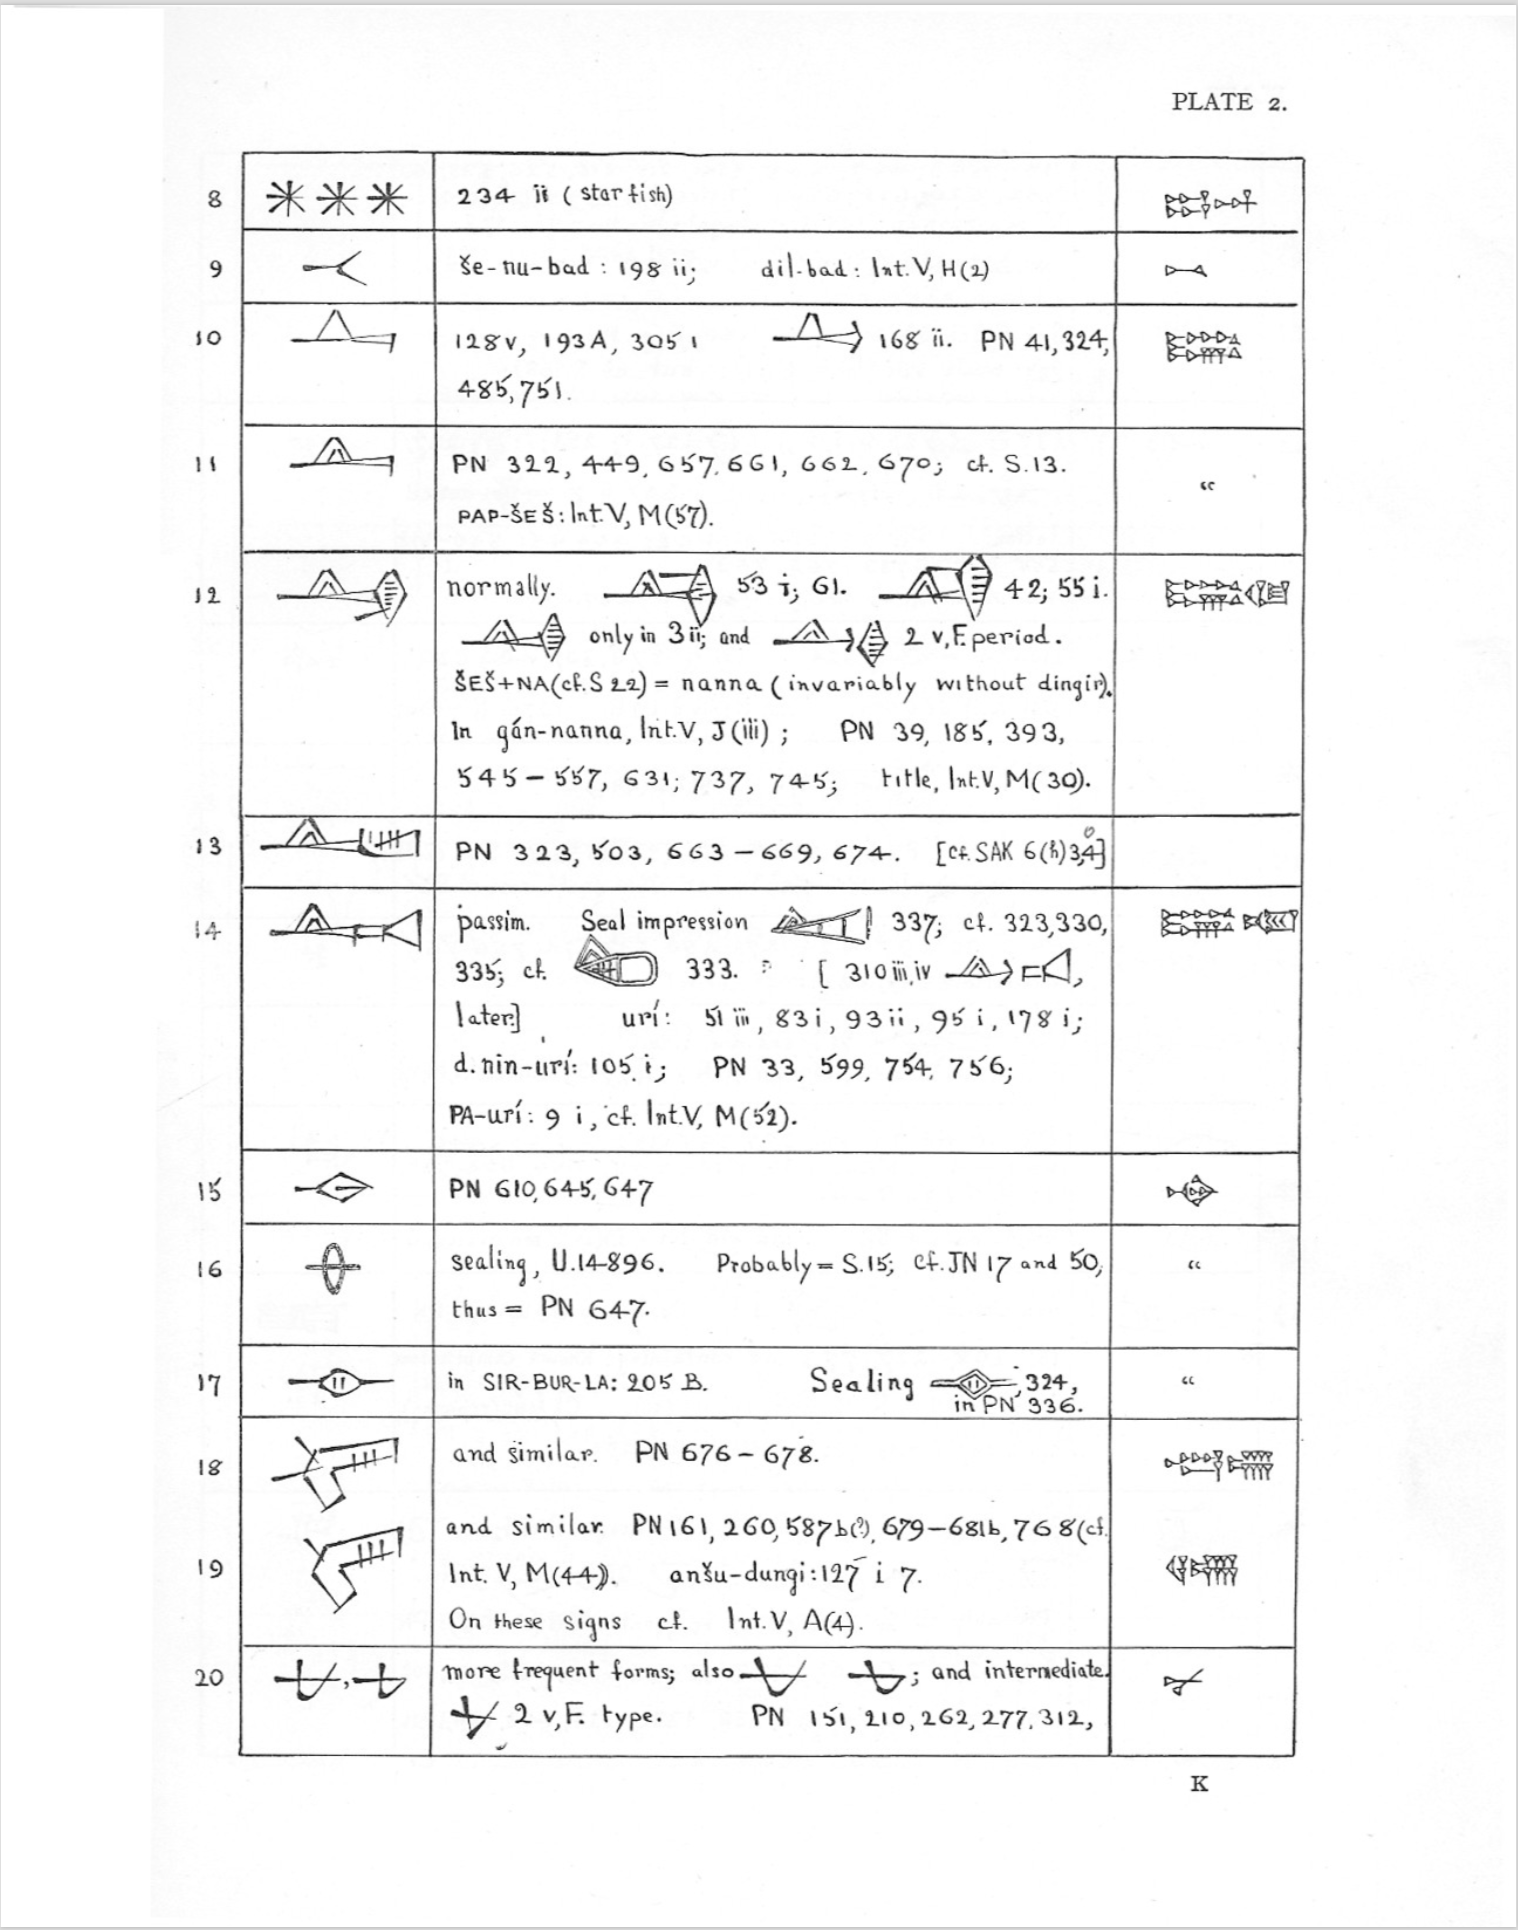 PLATE 2.
8 234 ii (star fish)
9 še-nu-bad : 198 ii; dil-bad : Int. V, H(2)
10 128 v, 193A, 305 i 168 ii. PN 41, 324,
485, 751.
11 PN 322, 449, 657, 661, 662, 670; cf. S.13.
"
PAP-ŠEŠ: Int. V, M(57).
12 normally. 53 i; 61. 42; 55 i.
only in 3 ii; and 2 v, F. period.
ŠEŠ+NA (cf. S 22) = nanna (invariably without dingir).
In gán-nanna, Int. V, J(iii); PN 39, 185, 393,
545 – 557, 631; 737, 745; title, Int. V, M(30).
13 PN 323, 503, 663 – 669, 674. [cf. SAK 6(h) 3,4]
14 passim. Seal impression 337; cf. 323, 330,
335; cf. 333. [310 iii, iv ,
later.] urí: 51 iii, 83 i, 93 ii, 95 i, 178 i;
d. nin-urí: 105 i; PN 33, 599, 754, 756;
PA-urí: 9 i, cf. Int. V, M(52).
15 PN 610, 645, 647
16 sealing, U.14896. Probably = S.15; cf. JN 17 and 50, "
thus = PN 647.
17 in SIR-BUR-LA: 205 B. Sealing , 324, "
in PN 336.
18 and similar. PN 676 – 678.
and similar. PN 161, 260, 587b(?), 679 – 681b, 768 (cf.
19 Int. V, M(44)). anšu-dungi: 127 i 7.
On these signs cf. Int. V, A(4).
20 more frequent forms; also ; and intermediate.
2 v, F. type. PN 151, 210, 262, 277, 312,
K